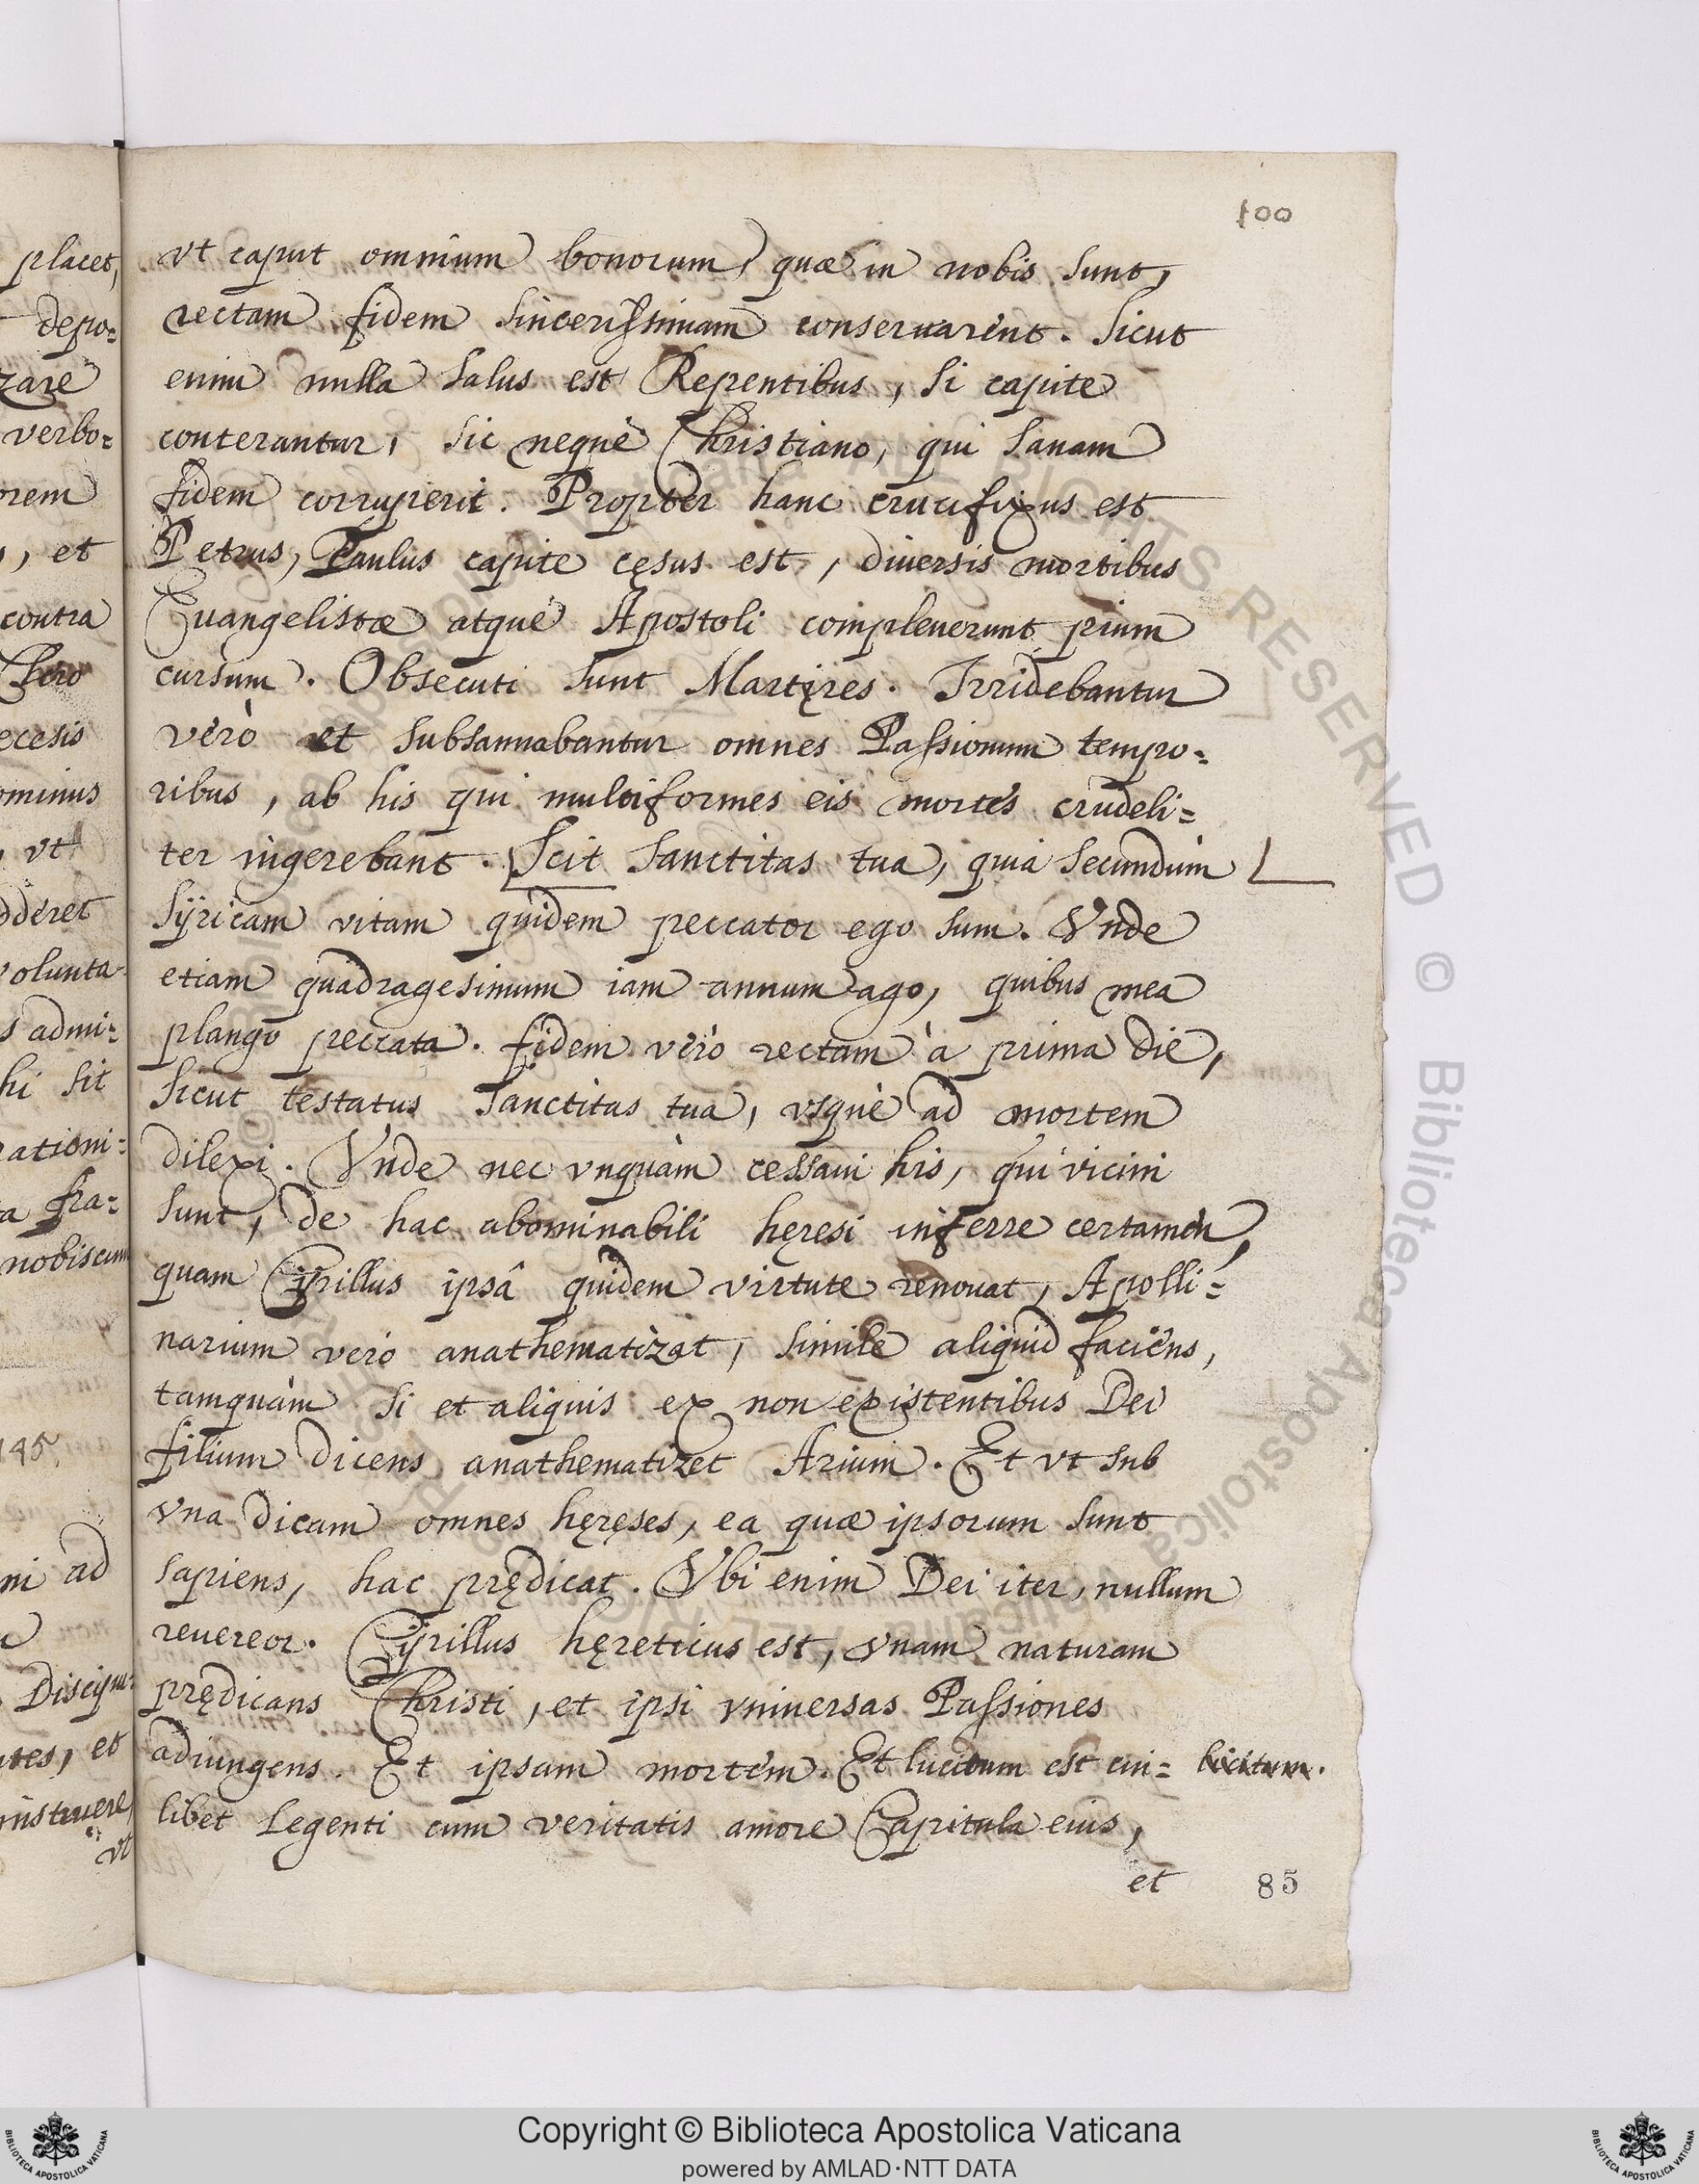 100
vt caput omnium bonorum, quæ in nobis sunt,
rectam fidem sincerissimam conseruarent. Sicut
enim nulla salus est Repentibus, si capite
conterantur, sic nequè Christiano, qui sanam
fidem corruperit. Propter hanc crucifixus est
Petrus, Paulus capite cęsus est, diuersis mortibus
Euangelistæ atquè Apostoli compleuerunt pium
cursum. Obsecuti sunt Martyres. Irridebantur
verò et subsannabantur omnes Passionum tempo=
ribus, ab his qui multiformes eis mortes crudeli=
ter ingerebant. Scit sanctitas tua, quia secundùm
Syricam vitam quidem peccator ego sum. Vnde
etiam quadragesimum iam annum ago, quibus mea
plango peccata. fidem verò rectam à prima die,
sicut testatus sanctitas tua, vsquè ad mortem
dilexi. Vnde nec vnquàm cessaui his, qui vicini
sunt, de hac abominabili hęresi inferre certamen,
quam Cyrillus ipsâ quidem virtute renouat, Apolli=
narium verò anathematizat, simile aliquid faciens,
tamquàm si et aliquis ex non existentibus Dei
filium dicens anathematizet Arium. Et vt sub
vna dicam omnes hęręses, ea quæ ipsorum sunt
sapiens, hac prędicat. Vbi enim Dei iter, nullum
reuereor. Cyrillus hęreticus est, vnam naturam
prędicans Christi, et ipsi vniuersas Passiones
adiungens. Et ipsam mortem. Et lucitum est cui=
libet Legenti cum veritatis amore Capitula eius,
et
85
placet,
depo=
zare
verbo=
orem
, et
contra
ecesis
ominus
, vt
dderet
volunta
s admi=
hi sit
rationi=
a fra=
nobiscum
145
ni ad
Discipu=
ntes, et
vt
Copyright © Biblioteca Apostolica Vaticana
powered by AMLAD·NTT DATA